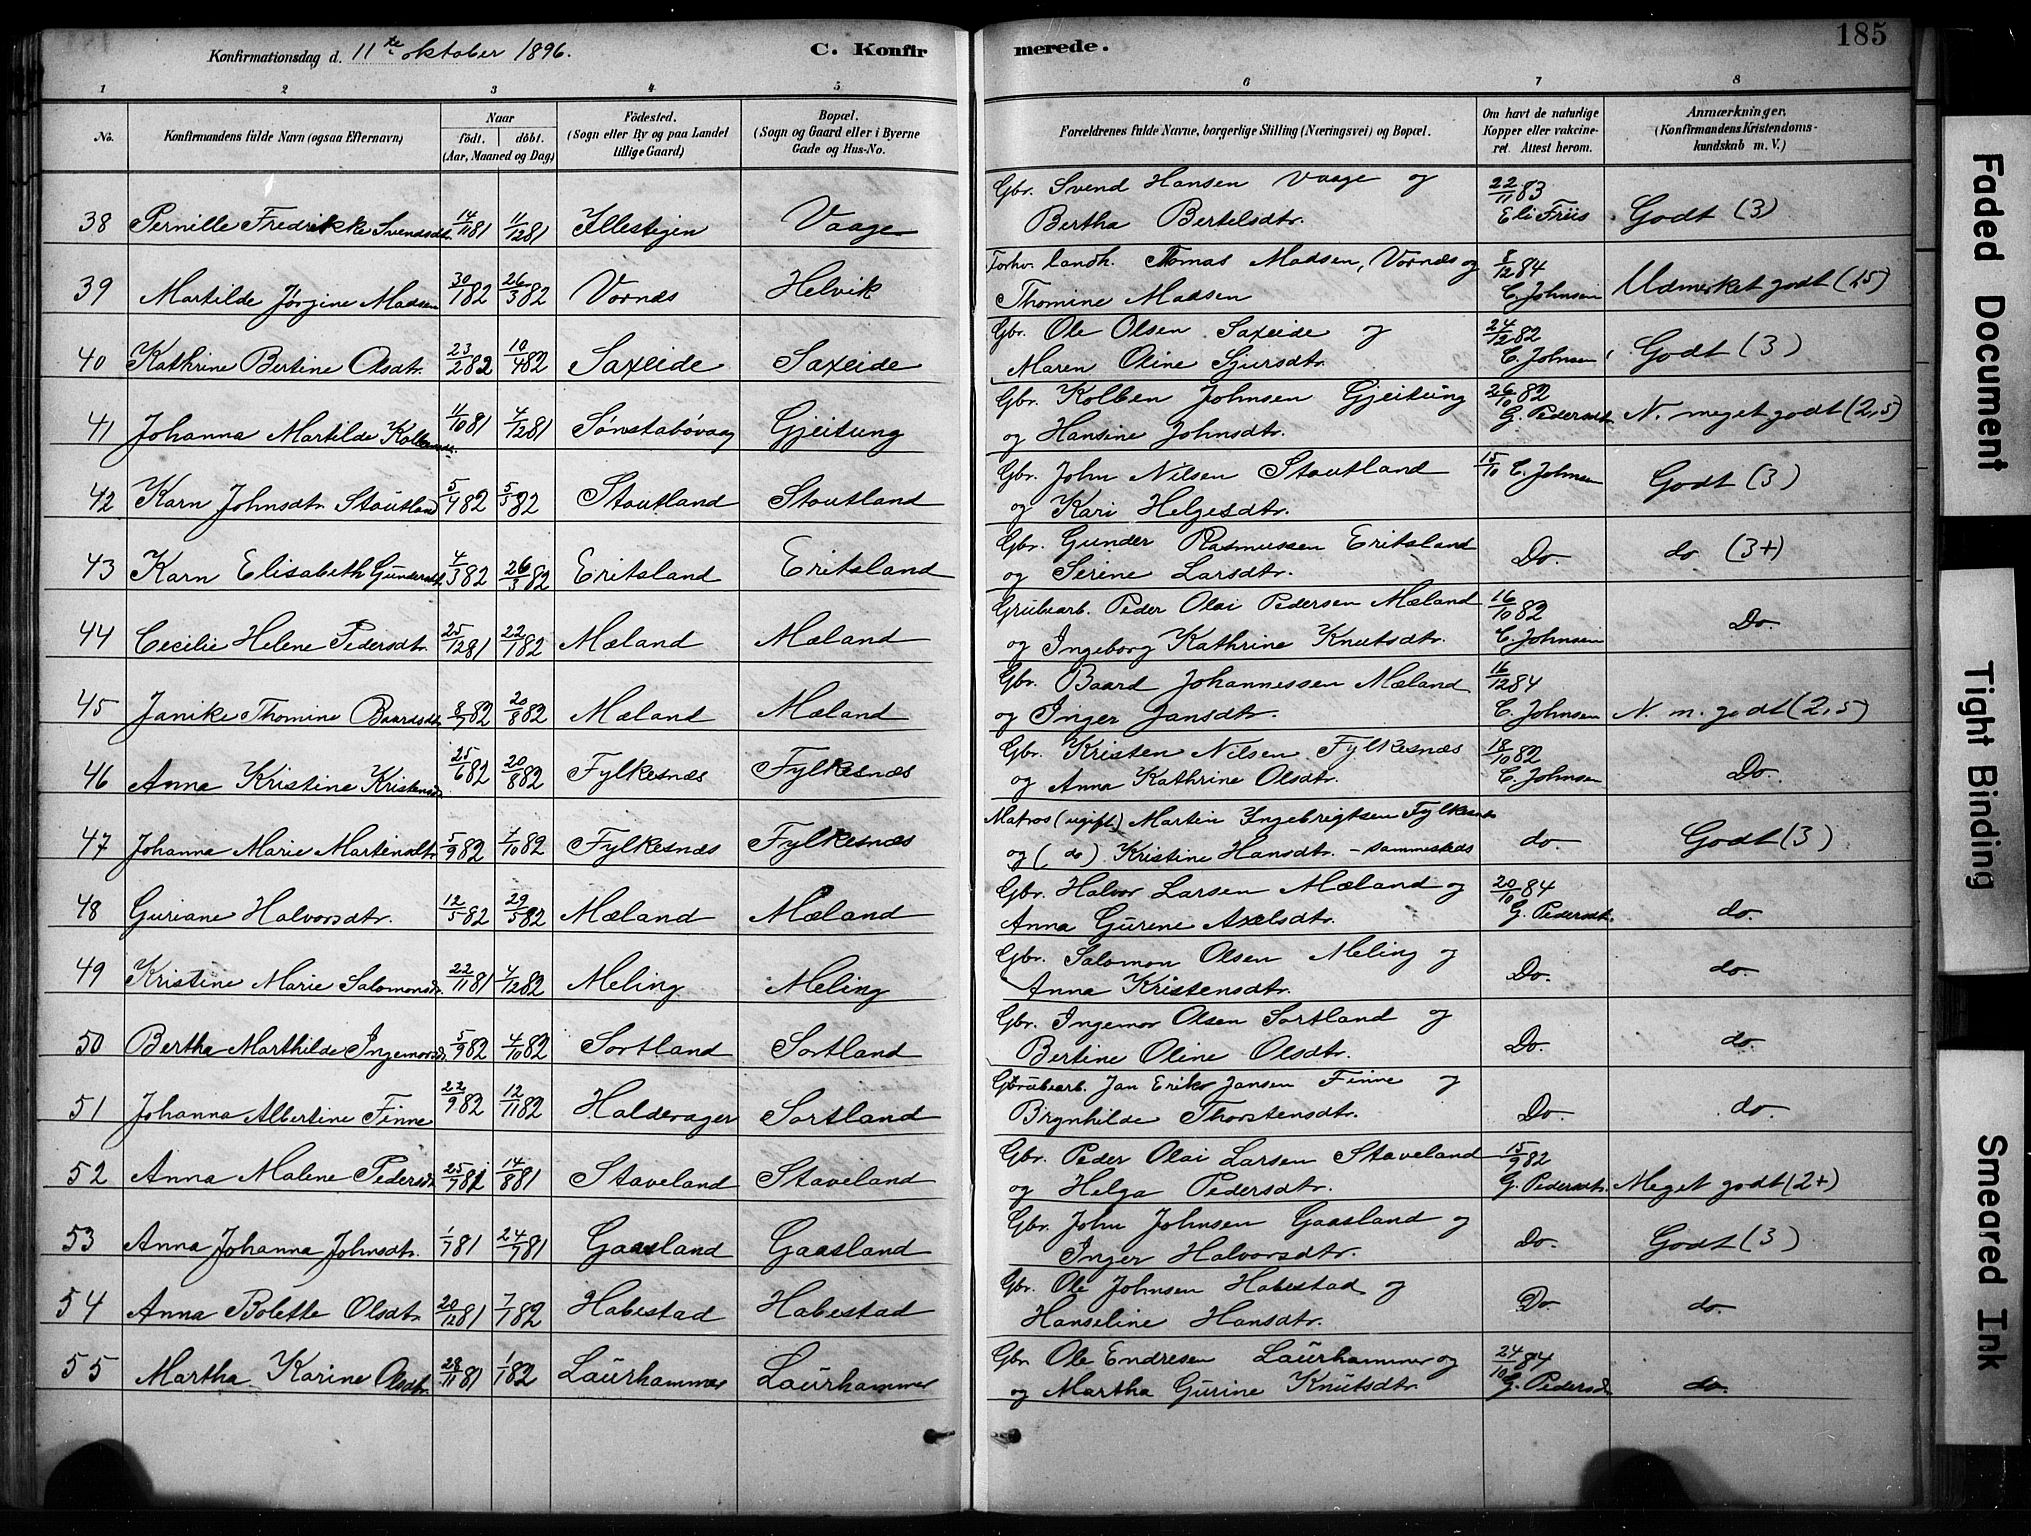 185
Konfirmationsdag d. 11te oktober 1896. C. Konfirmerede.
1 2 3 4 5 6 7 8
No. Konfirmandens fulde Navn (ogsaa Efternavn) Naar født. døbt. (Aar, Maaned og Dag) Fødested. (Sogn eller By og paa Landet tillige Gaard) Bopæl. (Sogn og Gaard eller i Byerne Gade og Hus-No. Forældrenes fulde Navne, borgerlige Stilling (Næringsvei) og Bopæl. Om havt de naturlige Kopper eller vakcineret. Attest herom. Anmærkninger. (Konfirmandens Kristendomskundskab m. V.)
38 Pernille Fredrikke Svendsdtr. 14/11 81 11/12 81 Illestigen Vaage Gbr. Svend Hansen Vaage og 22/11 83
Bertha Bertelsdtr. Eli Friis Godt (3)
39 Martilde Jørgine Madsen 30/1 82 26/3 82 Vornes Helvik Forhv. landh. Tomas Madsen, Vornes og 8/12 84
Thomine Madsen C. Johnsen Udmerket godt (1,5)
40 Kathrine Bertine Olsdtr. 23/2 82 10/4 82 Saxeide Saxeide Gbr. Ole Olsen Saxeide og 24/12 82
Maren Oline Sjursdtr. C. Johnsen Godt (3)
41 Johanna Martilde Kolbensdtr. 11/10 81 4/12 81 Sønstabøvaag Gjeitung Gbr. Kolben Johnsen Gjeitung 26/10 82
og Hansine Johnsdtr. G. Pedersdtr. N. meget godt (2,5)
42 Karn Johnsdtr. Stoutland 5/4 82 5/5 82 Stoutland Stoutland Gbr. John Nilsen Stoutland 15/10 C. Johnsen
og Kari Helgesdtr. Godt (3)
43 Karn Elisabeth Gundersdtr. 4/3 82 26/3 82 Eritsland Eritsland Gbr. Gunder Rasmussen Eritsland
og Serine Larsdtr. Do. do (3+)
44 Cecilie Helene Pedersdtr. 25/12 81 22/1 82 Mæland Mæland Grubearb. Peder Olai Pedersen Mæland 16/10 82
og Ingeborg Kathrine Knutsdtr. C. Johnsen Do.
45 Janike Thomine Baardsdtr. 8/7 82 20/8 82 Mæland Mæland Gbr. Baard Johannessen Mæland 16/12 84
og Inger Jansdtr. C. Johnsen N. m. godt (2,5)
46 Anna Kristine Kristensdtr. 25/6 82 20/8 82 Fylkesnæs Fylkesnæs Gbr. Kristen Nilsen Fylkesnæs 18/10 82
og Anna Kathrine Olsdtr. C. Johnsen Do.
47 Johanna Marie Martensdtr. 5/9 82 7/10 82 Fylkesnæs Fylkesnæs Matros (ugift) Martin Ingebrigtsen Fylkesnæs
og (do) Kristine Hansdtr. - sammesteds do. Godt (3)
48 Guriane Halvorsdtr. 12/5 82 29/5 82 Mæland Mæland Gbr. Halvor Larsen Mæland og 20/10 84
Anna Gurene Axelsdtr. G. Pedersdtr. do.
49 Kristine Marie Salomonsdtr. 22/11 81 4/12 82 Meling Meling Gbr. Salomon Olsen Meling og
Anna Kristensdtr. Do. do.
50 Bertha Marthilde Ingemorsdtr. 5/9 82 4/10 82 Sortland Sortland Gbr. Ingemor Olsen Sortland og
Bertine Oline Olsdtr. Do. do.
51 Johanna Albertine Finne 22/9 82 12/11 82 Halderager Sortland Grubearb. Jan Erik Jansen Finne og
Brynhilde Thorstensdtr. Do. do.
52 Anna Malene Pedersdtr. 25/7 81 14/8 81 Staveland Staveland Gbr. Peder Olai Larsen Staveland 15/9 82
og Helga Pedersdtr. G. Pedersdtr. Meget godt (2+)
53 Anna Johanna Johnsdtr. 1/7 81 24/7 81 Gaasland Gaasland Gbr. John Johnsen Gaasland og
Inger Halvorsdtr. Do. Godt (3)
54 Anna Bolette Olsdtr. 20/12 81 7/1 82 Habestad Habestad Gbr. Ole Johnsen Habestad og
Hanseline Hansdtr. Do do.
55 Martha Karine Olsdtr. 28/11 81 1/1 82 Laurhammer Laurhammer Gbr. Ole Endresen Laurhammer og 24/10 84
og Martha Gurine Knutsdtr. G. Pedersd. do.
Faded Document
Tight Binding
Smeared Ink